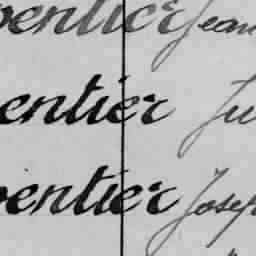 pentier Jean
entier Ju
pentier Josep